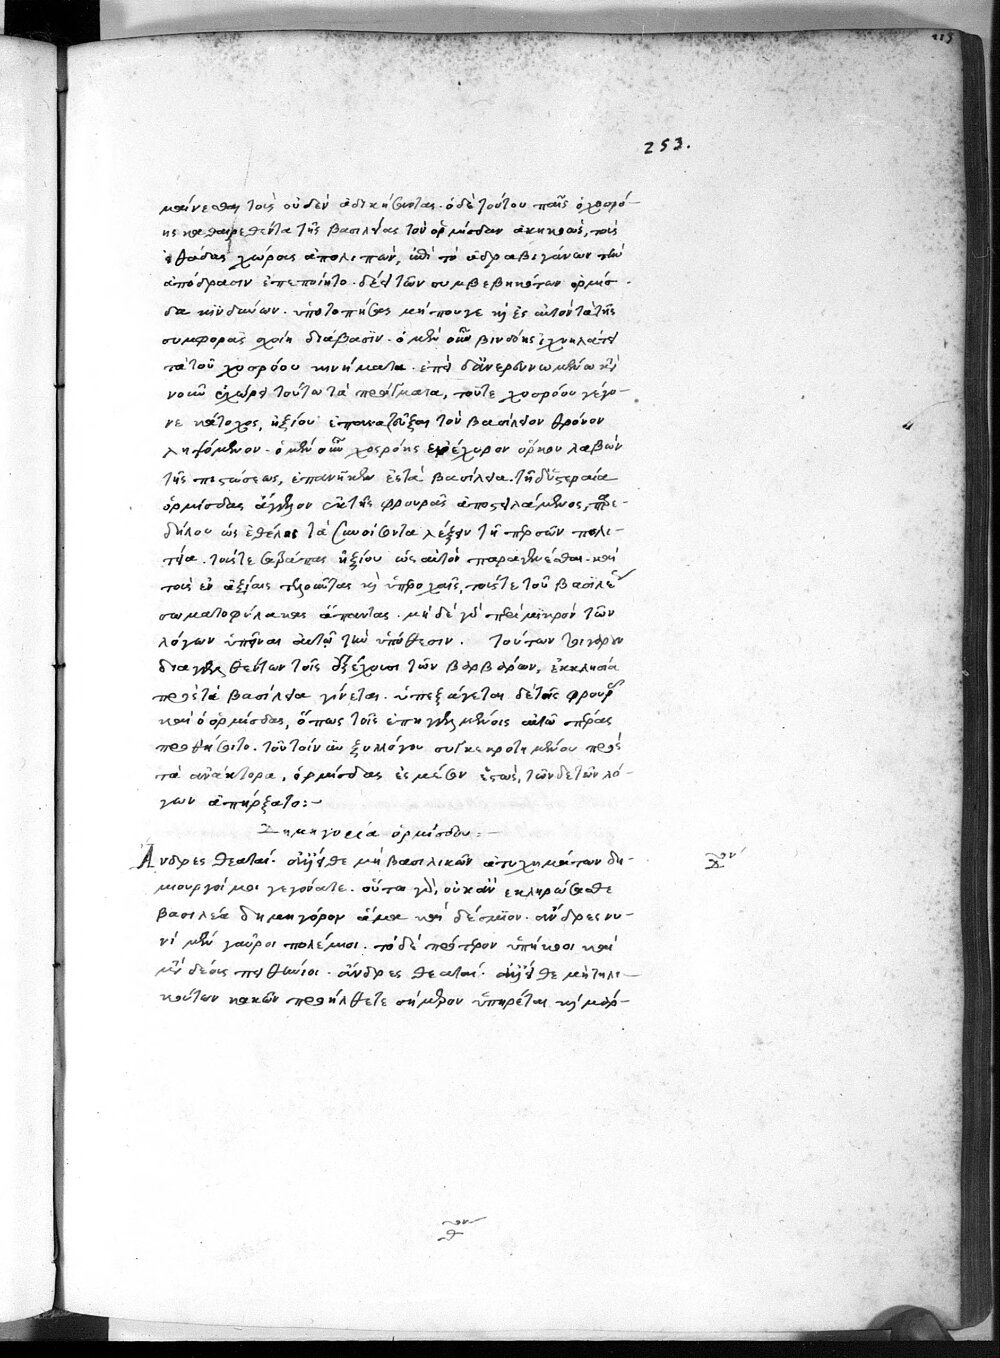 253.
μαίνεσθαι τοῖς οὐδὲν ἀδικήσαντας. ὁ δὲ τούτου παῖς ὁ χοσρό-
ης καθαιρεθέντα τῆς βασιλείας τὸν ὁρμίσδαν ἀκηκοώς, τὰς
ἠθάδας χώρας ἀπολιπών, ἐπὶ τὸ ἀδραβιγάνων τὴν
ἀπόδρασιν ἐπεποίητο. δέει τῶν συμβεβηκότων ὁρμίσ-
δα κινδύνων. ὑποτοπήσας μή που γε κỳ ἐς αὐτὸν τὰ τῆς
συμφορᾶς σχοίη διάβασιν. ὁ μὲν οὖν βινδόης ἰχνηλάτει
τὰ τοῦ χοσρόου κινήματα. ἐπεὶ δ' ἀνερευνωμένω κỳ
νοῦν ἐχώρει τούτω τὰ πράγματα, τοῦτε χοσρόου γέγο-
νε κάτοχος, ἠξίου ἐπαναζεῦξαι τὸν βασίλειον θρόνον
ληψόμενον. ὁ μὲν οὖν χοσρόης ἐνέχυρον ὅρκου λαβὼν
τῆς πιστώσεως, ἐπανῆκεν ἐς τὰ βασίλεια. τῇ δ' ὑστεραία
ὁρμίσδας ἄγγελον ἐκ τῆς φρουρᾶς ἀποστειλάμενος, προ-
δήλου ὡς ἐθέλει τὰ συνοίσοντα λέξειν τῇ περσῶν πολι-
τεία. τούς τε σατράπας ἠξίου ὡς αὐτὸν παραγενέσθαι. καὶ
τοὺς ἐν ἀξίαις τελοῦντας κỳ ὑπεροχαῖς, τούς τε τοῦ βασιλέως
σωματοφύλακας ἅπαντας. μηδὲ γὰρ περὶ μικρῶν τῶν
λόγων ὑπεῖναι αὐτῷ τὴν ὑπόθεσιν. τούτων τοιγαροῦν
διαγγελθέντων τοῖς ἐξέχουσι τῶν βαρβάρων, ἐκκλησία
πρὸς τὰ βασίλεια γίνεται. ὑπεξάγεται δὲ τῆς φρουρᾶς
καὶ ὁ ὁρμίσδας, ὅπως τοῖς ἐπηγγελμένοις αὐτῷ πέρας
προσθήσοιτο. τοῦ τοίνυν ξυλλόγου συγκεκροτημένου πρὸς
τὰ ἀνάκτορα, ὁρμίσδας ἐς μέσον ἑστώς, τῶνδε τῶν λό-
γων ἀπήρξατο:-
Δημηγορία ὁρμίσδου:-
Ἄνδρες θεαταί. ἀλγεῖσθε μὴ βασιλικῶν ἀτυχημάτων δη-
μιουργοί μοι γεγόνατε. οὔπω γὰρ, οὐκ ἂν ἐκληρώσασθε
βασιλέα δημηγόρον ἅμα καὶ δέσμιον. ἄνδρες νυ-
νὶ μὲν γαῦροι πολέμιοι. τὸ δὲ πρότερον ὑπήκοοι καὶ
μὴν δέους πειθήνιοι. ἄνδρες θεαταί. ἀλγεῖσθε μὴ τηλι-
κούτων κακῶν προήλθετε σήμερον ὑπηρέται κỳ μάρ-